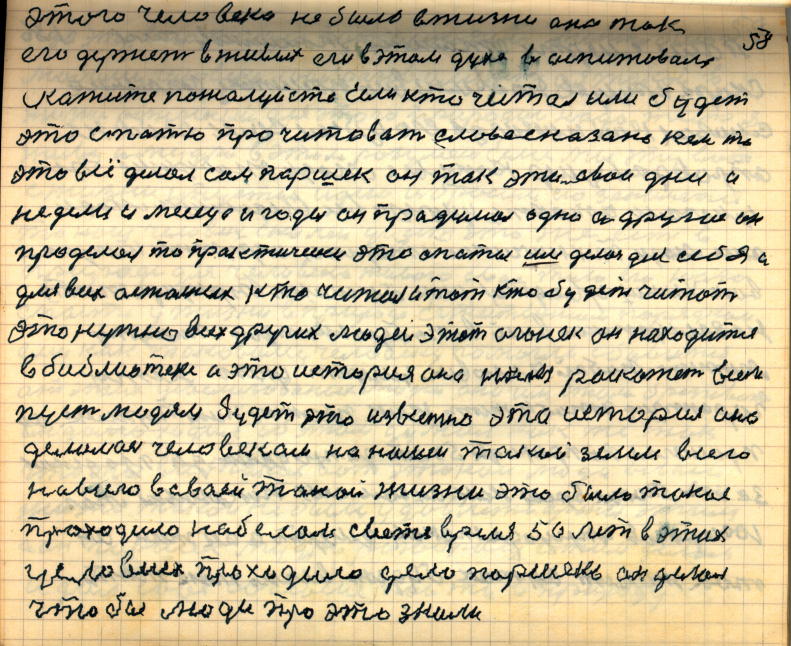 этого человека не было в жизни она так 58
его держит в живых его в этом духе воспитовали
скажите пожалуйсто если кто читал или будет
это статью прочитоват слово сказано кем то
это всё делал сам паршек он так эти свои дни а
недели и и годы он одно а другие он
проделал то практически это статья им делая для себя а
для всех остальных кто читал и тот кто будет читат
это нужно всех других людей этот он находится
в библиотеке а это история она раскажет всем
пуст людям будет это известно эта история она
человеком на нашей такой земли всего
навсего в сваей такой жизни это было такое
проходило на белом свете время 50 лет в этих
условиях проходило дело паршека он делал
что бы люди про это знали